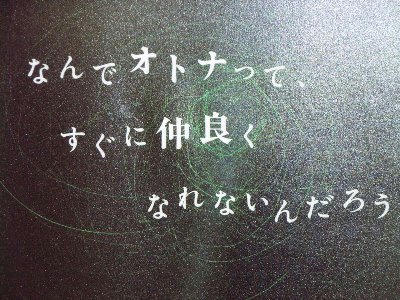 なんでオトナって、
すぐに仲良く
なれないんだろう